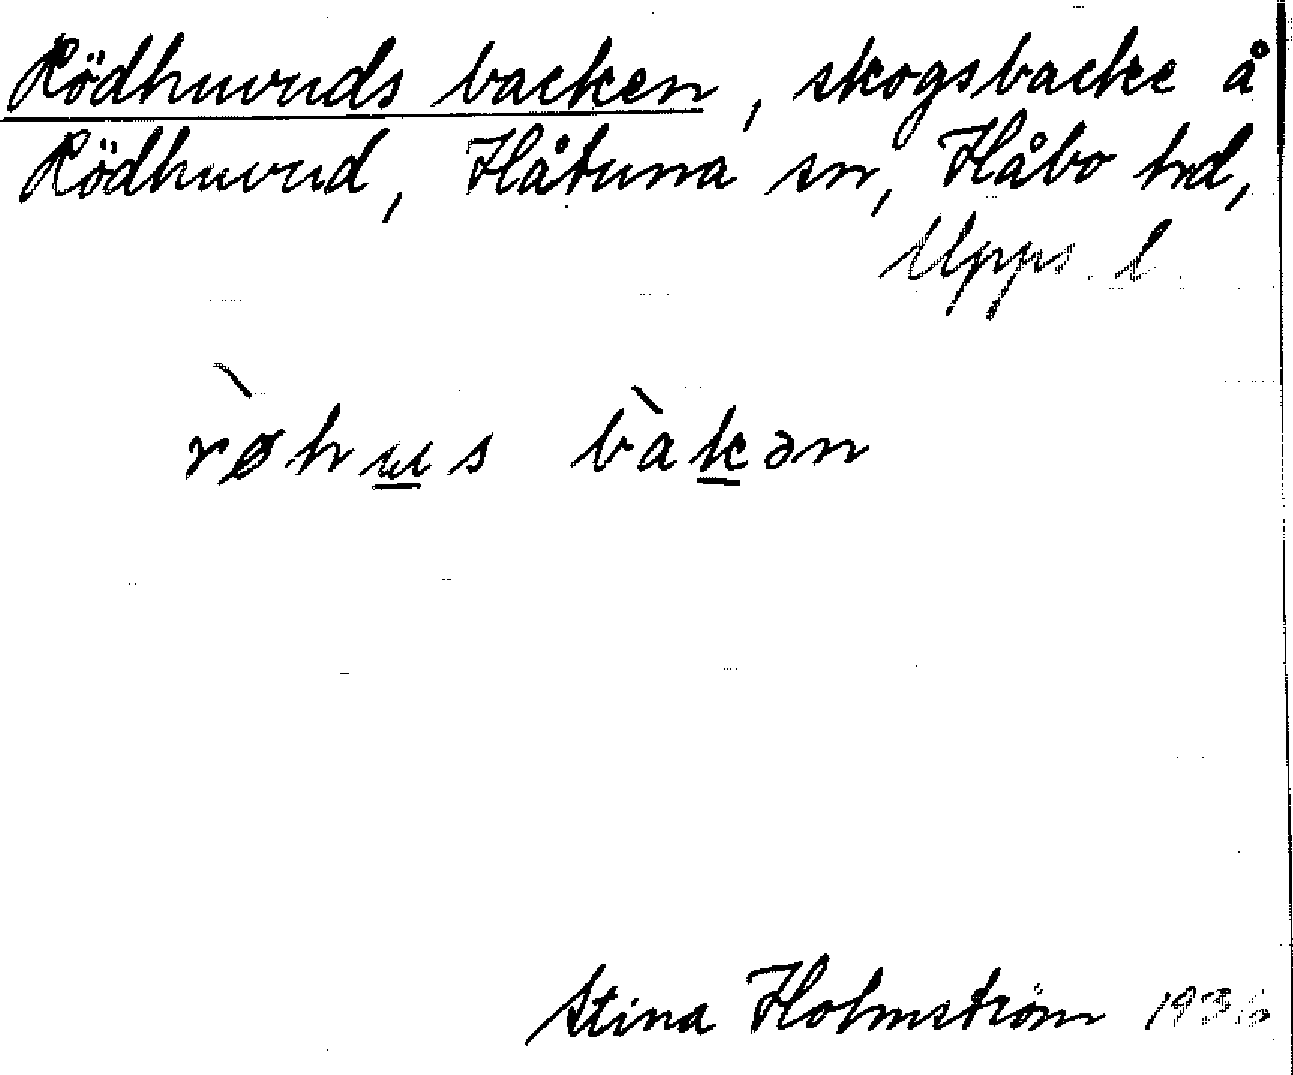 Rödhuvuds backen, skogsbacke å
Rödhuvud, Håtuna sn, Håbo hd,
Upps. l.
røhus bakən
Stina Holmström 1936